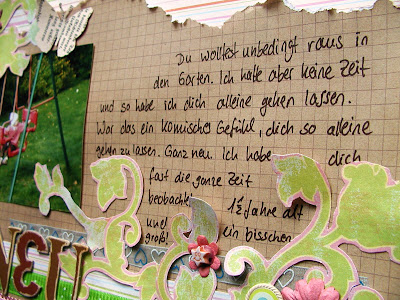 Du wolltest unbedingt raus in
den Garten. Ich hatte aber keine Zeit
und so habe ich dich alleine gehen lassen.
War das ein komisches Gefühl, dich so alleine
gehen zu lassen. Ganz neu. Ich habe dich
fast die ganze Zeit
beobachtet
1½ Jahre alt
und ein bisschen
groß!
NEU